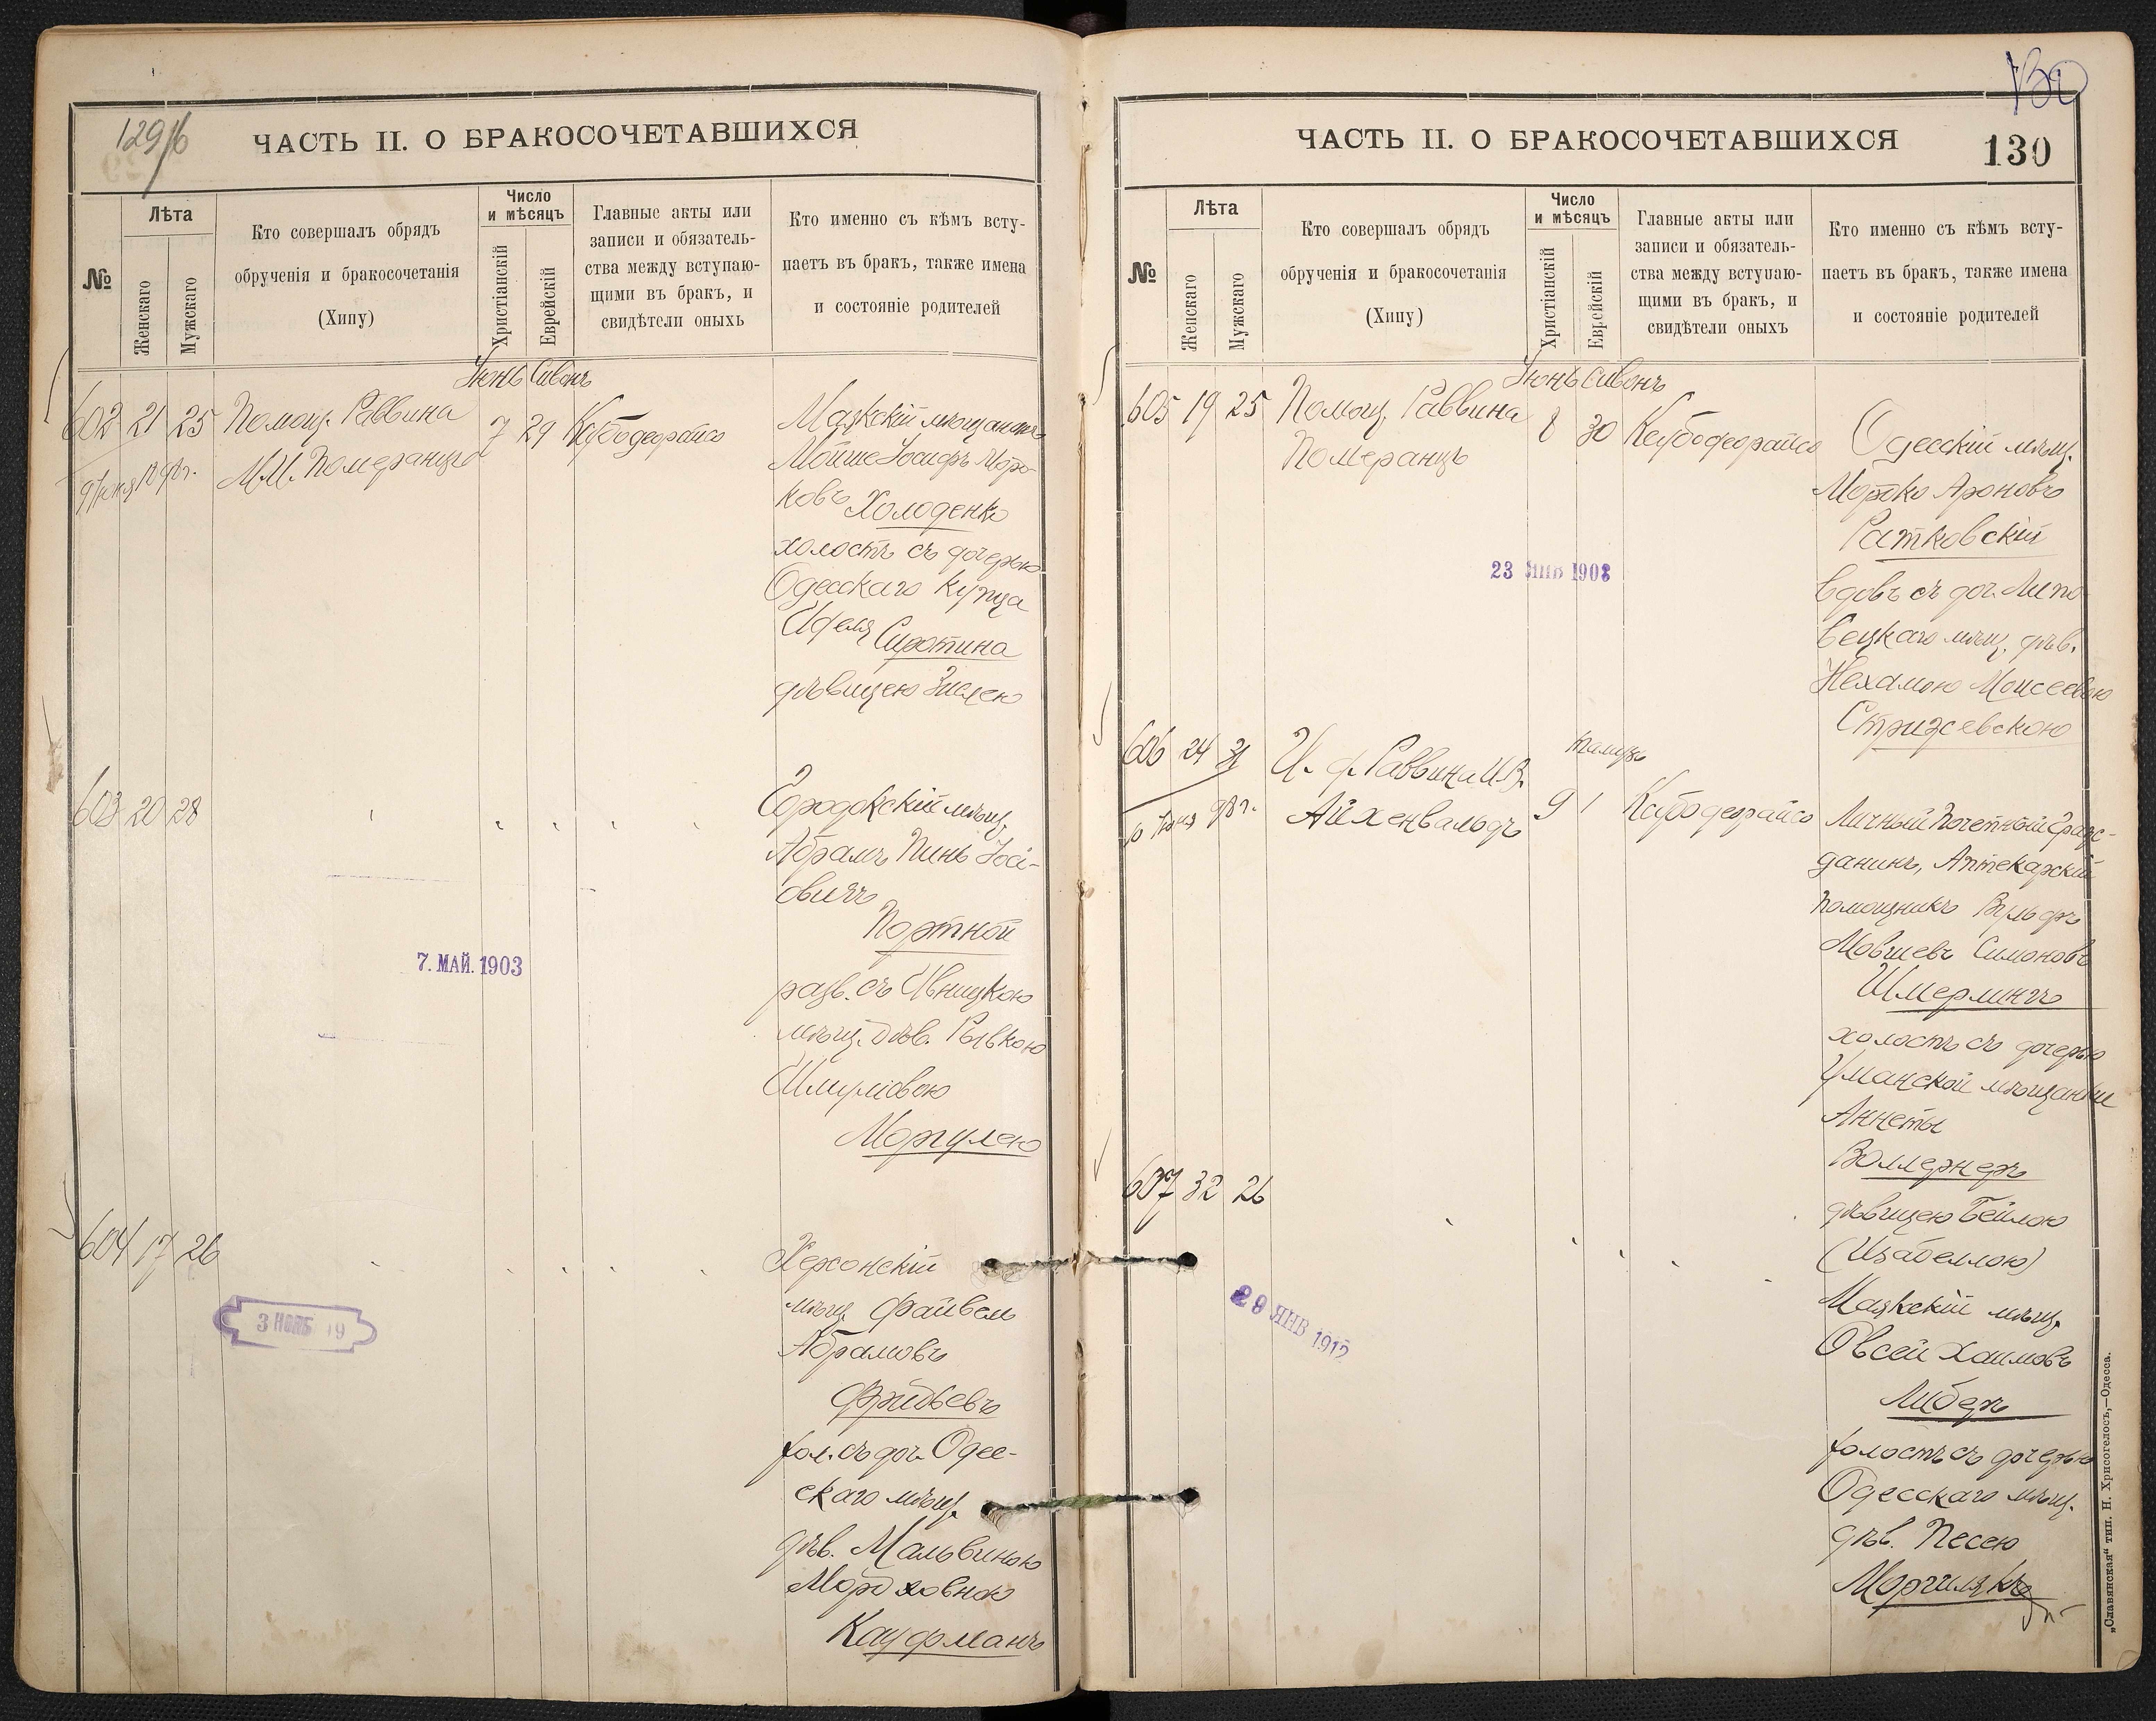 129/б
ЧАСТЬ II. О БРАКОСОЧЕТАВШИХСЯ
№
Лѣта
Женскаго
Мужскаго
Кто совершалъ обрядъ
обрученія и бракосочетанія
(Хипу)
Число
и мѣсяцъ
Христіанскій
Еврейскій
Главные акты или
записи и обязатель-
ства между вступаю-
щими въ бракъ, и
свидѣтели оныхъ
Кто именно съ кѣмъ всту-
паетъ въ бракъ, также имена
и состояніе родителей
Іюнь Сивонъ
602 21 25 Помощ. Раввина 7 29
М.И. Померанцъ
9 Іюня 1898 г.
Маякскій мѣщанинъ
Мойше Іосифъ Мор-
ковъ Холоденко
холостъ съ дочерью
Одесскаго купца
Сиротина
дѣвицею Зислею
603 20 28
Городокскій мѣщ.
Абрамъ Пинь Іос-
овичъ
Портной
7. МАЙ. 1903
разв. съ Ивницкою
мѣщ. дѣв. Рывкою
Шмулiовою
Моргулею
604 17 26
Херсонскій
мѣщ. Файвель
3 НОЯБ 19
Абрамовъ
хол. съ доч. Одес-
скаго мѣщ.
дѣв. Мальвиною
Мордховною
Кауфманъ
ЧАСТЬ II. О БРАКОСОЧЕТАВШИХСЯ
130
№
Лѣта
Женскаго
Мужскаго
Кто совершалъ обрядъ
обрученія и бракосочетанія
(Хипу)
Число
и мѣсяцъ
Христіанскій
Еврейскій
Главные акты или
записи и обязатель-
ства между вступаю-
щими въ бракъ, и
свидѣтели оныхъ
Кто именно съ кѣмъ всту-
паетъ въ бракъ, также имена
и состояніе родителей
Іюнь Сивонъ
605 19 25 Помощ. Раввина 8 30
Померанцъ
Одесскій мѣщ.
Мошко Ароновъ
Ратковскій
23 ЯНВ 1902
вдовъ съ доч. Липо-
вецкаго мѣщ. дѣв.
Нехамою Моисеевою
Стрижевскою
Тамузъ
606 24 31 И. ф. Раввина И.В. 9 1
Айхенвальдъ
10 Іюня 98 г.
Личный Почетный Граж-
данинъ, Аптекарскій
помощникъ Вульфъ
Мовшевъ Симоновъ
Шмерлингъ
холостъ съ дочерью
Уманской мѣщанки
Аннеты
Воллернеръ
дѣвицею Бейлою
(Изабеллою)
607 32 26
29 ЯНВ 1912
Маякскій мѣщ.
Овсей Хаимовъ
Либеръ
холостъ съ дочерью
Одесскаго мѣщ.
дѣв. Песею
„Славянская“ тип. Н. Хрисогелосъ,—Одесса.